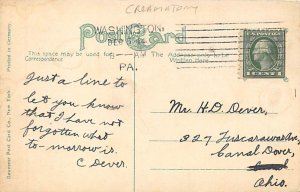 CREAMATORY
WASHINGTON,
DEC
PA.
Post Card
This space may be used for
Correspondence
The Address only to be
Written Here
Printed in Germany.
Souvenir Post Card Co., New York
1 CENT 1
Just a line to
let you know
that I have not
forgotten what
to-morrow is.
C. Dever.
Mr. H.D. Dever,
327 Tuscarawas Av.,
Canal Dover,
Ohio.